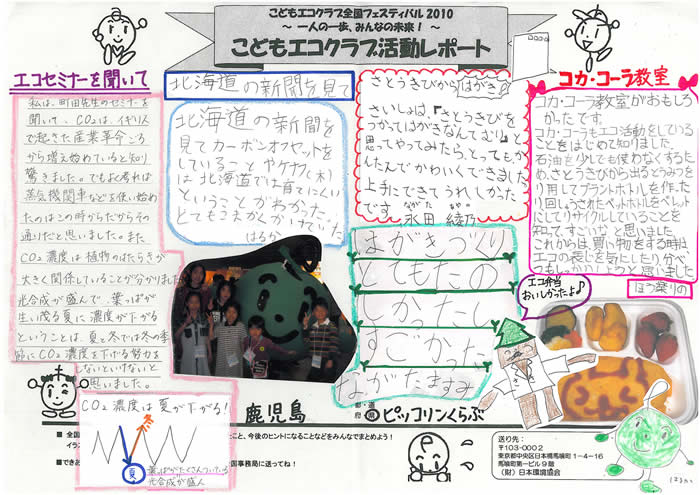 こどもエコクラブ全国フェスティバル2010
～ 一人の一歩、みんなの未来！ ～
こどもエコクラブ活動レポート
エコセミナーを聞いて
私は、町田先生のセミナーを
聞いて、CO₂は、イギリス
で起きた産業革命ごろ
から増え始めていると知り
驚きました。でもよく考えれば
蒸気機関車などを使い始め
たのはこの時からだからその
通りだと思いました。また
CO₂濃度は植物のはたらきが
大きく関係していることが分かりました
光合成が盛んで、葉っぱが
生い茂る夏に濃度が下がる
ということは、夏と冬では冬の季
節にCO₂濃度を下げる努力を
しないといけないと
思いました。
CO₂濃度は夏が下がる！
夏
葉っぱがたくさんついている
光合成が盛ん
北海道の新聞を見て
北海道の新聞を
見てカーボンオフセットを
していることやケナフ(木)
は北海道では育てにくい
ということがわかった。
とてもこまかくかいていた
はるか
さとうきびからはがき
さいしょは、『さとうきびを
つかってはがきなんてむり』と
思ってやってみたら、とってもか
んたんでかわいくできました。
上手にできてうれしかった
です。
ながた あやの
永田 綾乃
はがきづくり
とてもたの
しかったし
すごかった
ながたますみ
コカ・コーラ教室
コカ・コーラ教室がおもしろ
かったです。
コカ・コーラもエコ活動をしている
ことをはじめて知りました。
石油を少しでも使わなくするた
め、さとうきびから出るとうみつを
り用してプラントボトルを作った
り回しゅうされたペットボトルをペレット
にしてリサイクルしていることを
知って、すごいなと思いました。
これからは、買い物をする時は
エコの表じを気にしたり、分べ
つもしっかりしようと思いました
エコ弁当
おいしかったよ♪
鹿児島
都・道
府・県
ピッコリンくらぶ
送り先：
〒103-0002
東京都中央区日本橋馬喰町1-4-16
馬喰町第一ビル9階
（財）日本環境協会